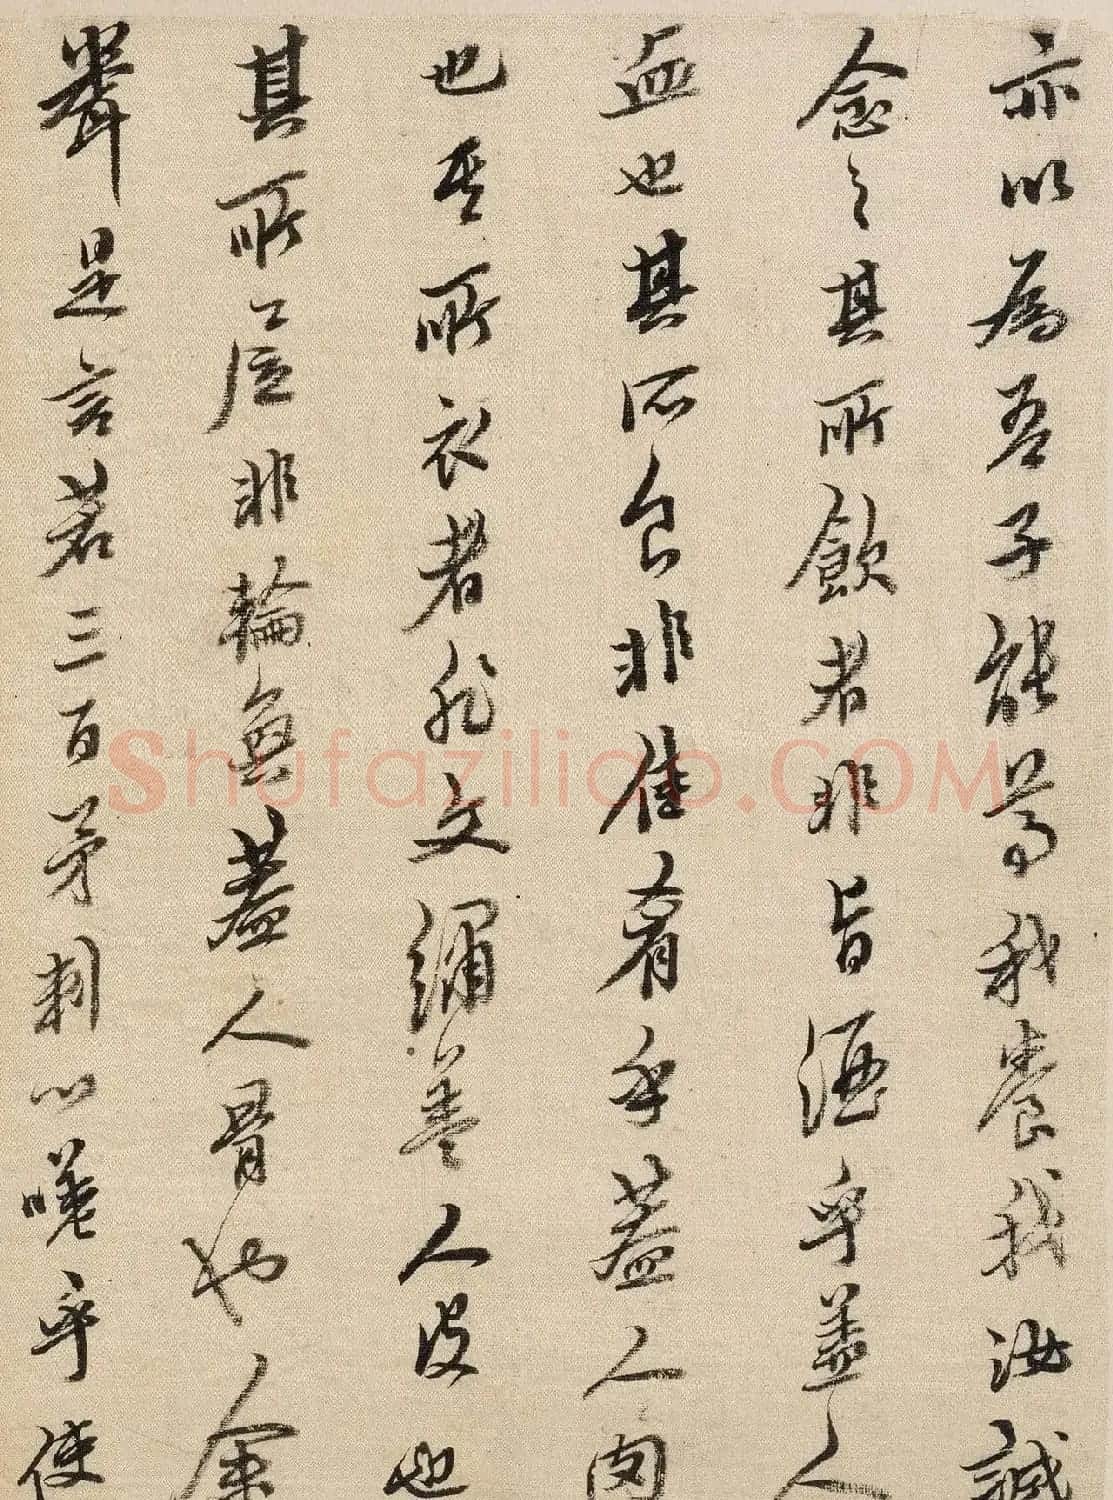 亦以為吾子能尊我養我汝誠
念之其所飲者非旨酒乎蓋人
血也其所食非佳肴乎蓋人肉
也其所衣者非文繡蓋人皮也
其所居非輪奐蓋人骨也余
聞是言若三百矛刺心嗟乎使
Shufaziliao.COM